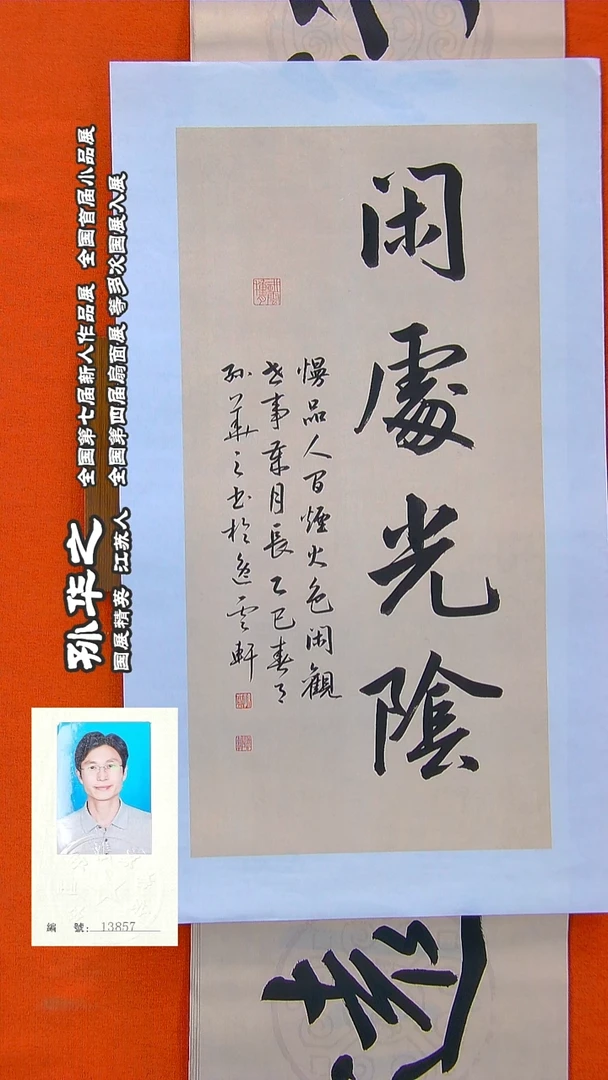 閑處光陰
慢品人百煙火色閑觀
世事葉月長乙巳春月
孙華之书於逸雲軒
孙华之
国展精英 江苏人
全国第七届新人作品展 全国首届小品展
全国第四届扇面展 等多次国展入展
編 號: 13857